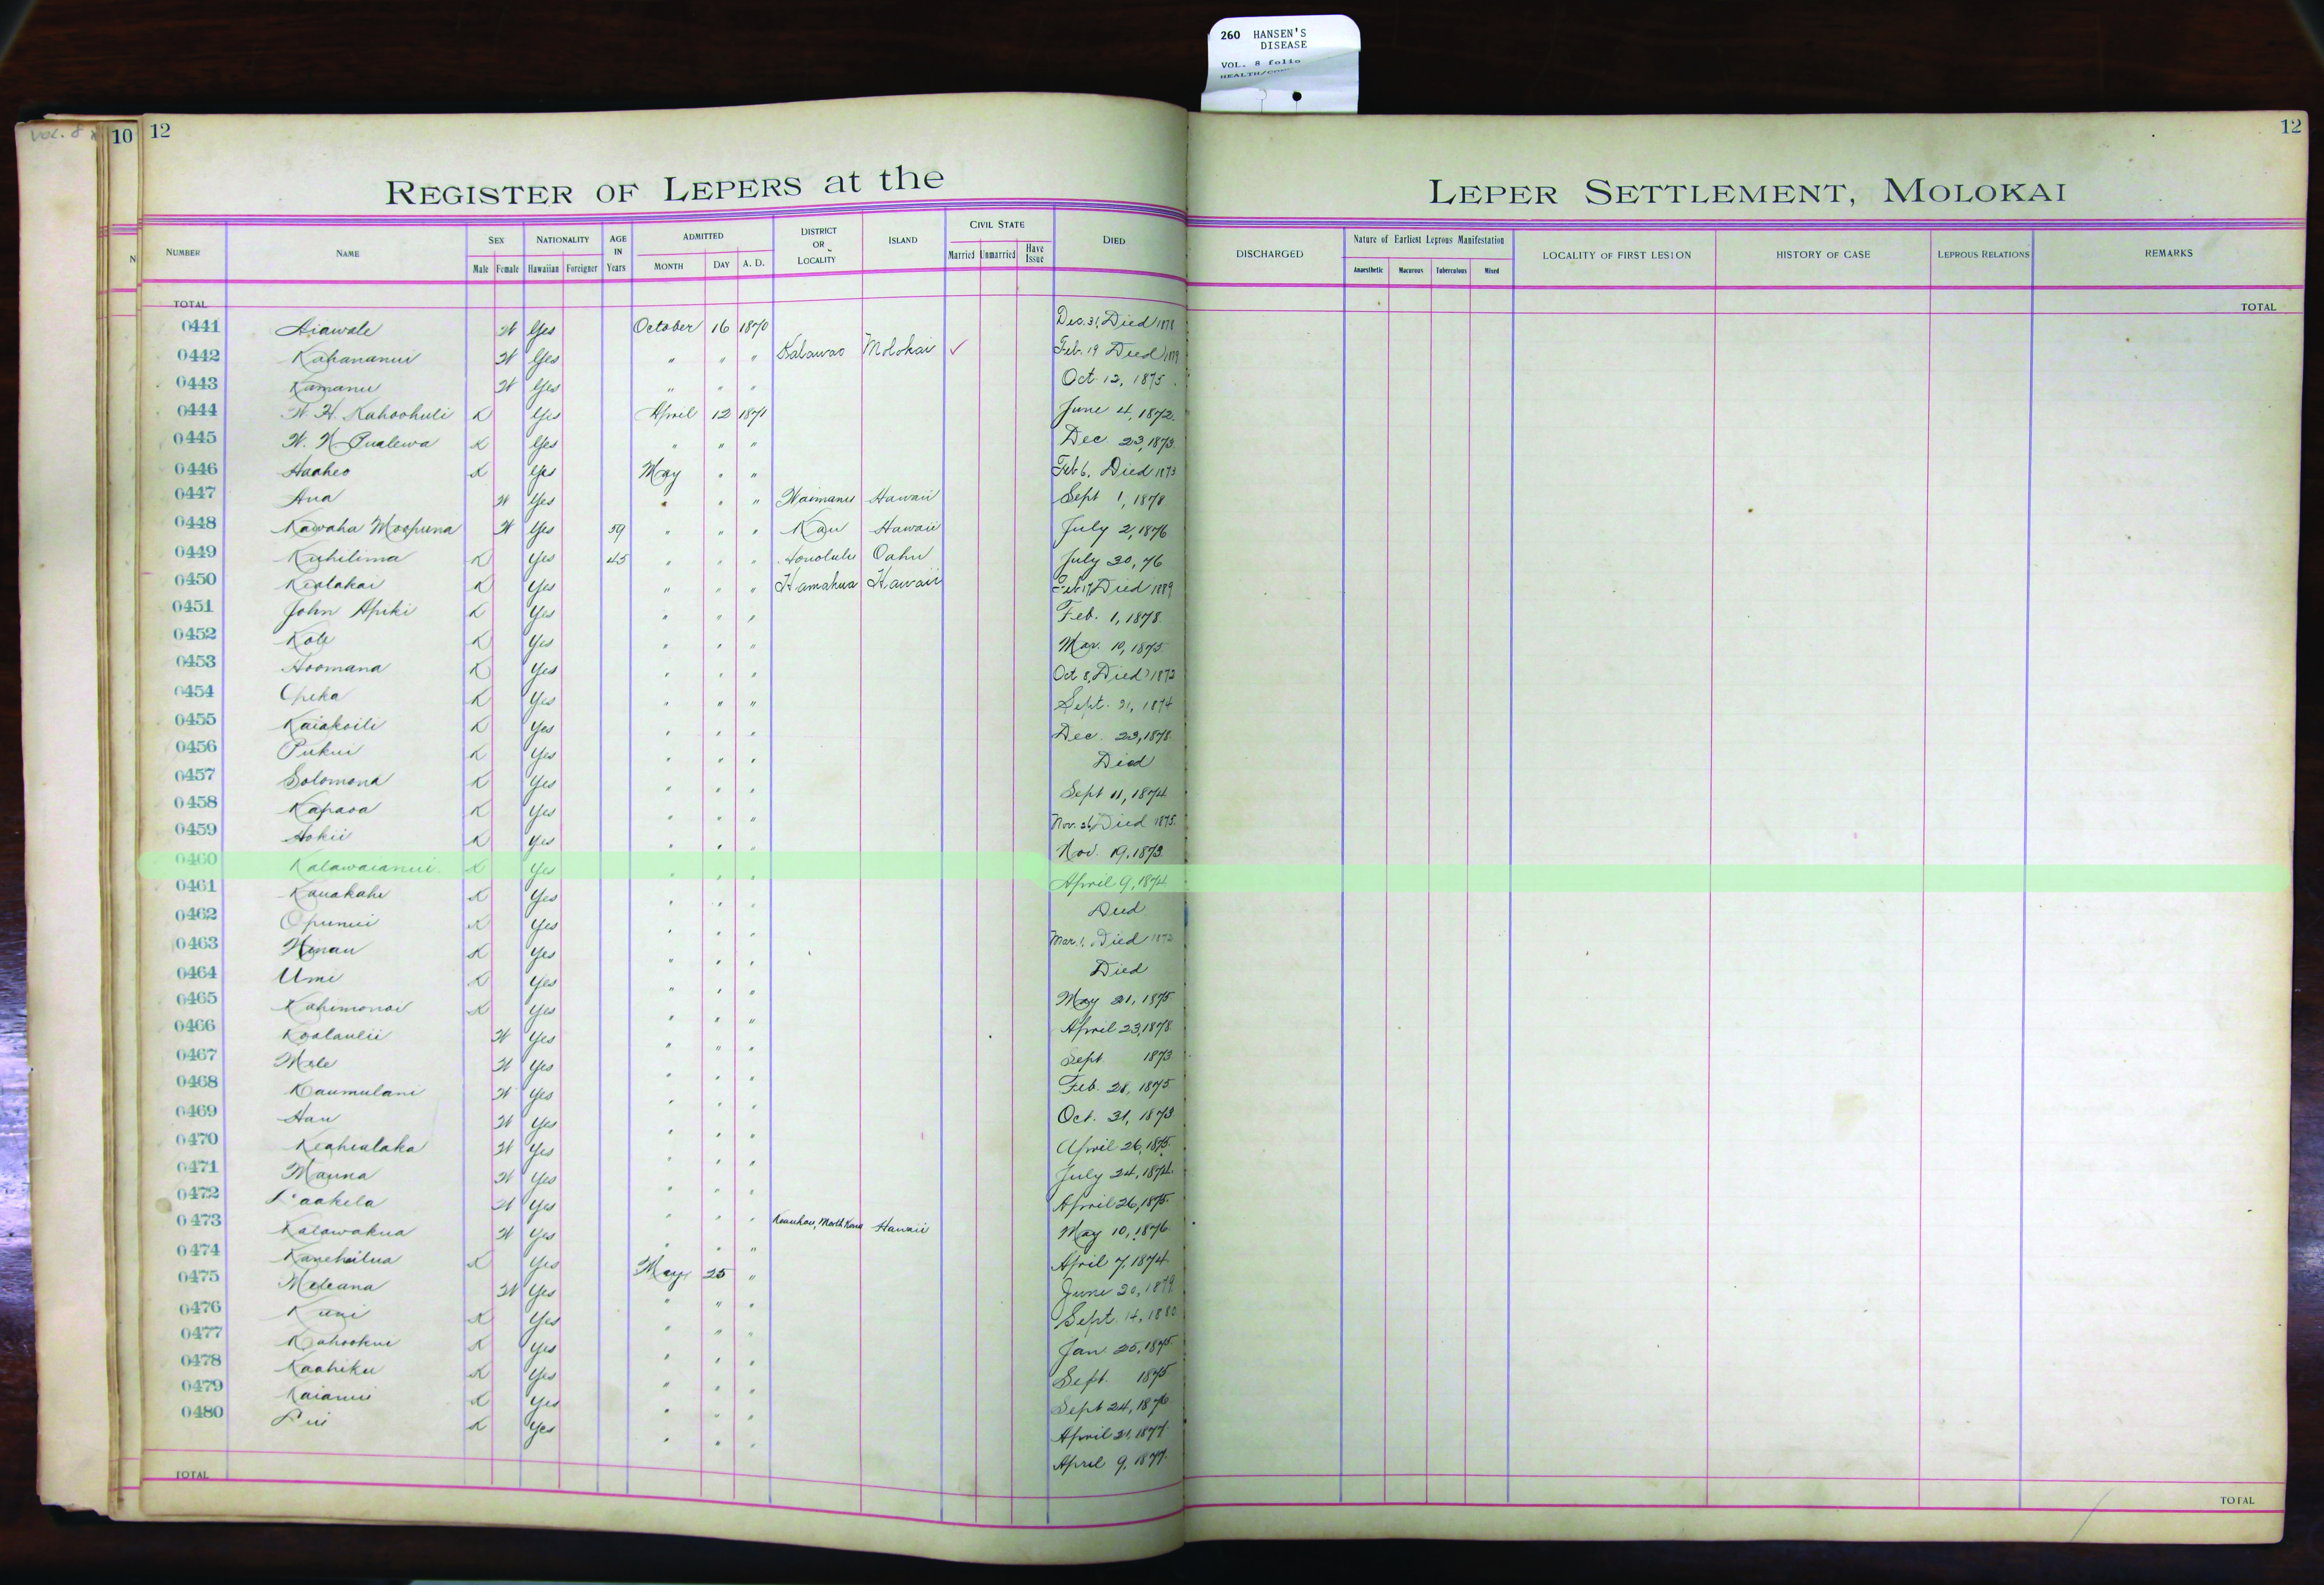 260 HANSEN'S
DISEASE
VOL. 8 folio
VOL. 8
10 12
12
REGISTER OF LEPERS at the LEPER SETTLEMENT, MOLOKAI
NUMBER NAME SEX NATIONALITY AGE IN Years ADMITTED DISTRICT OR LOCALITY ISLAND CIVIL STATE DIED DISCHARGED Nature of Earliest Leprous Manifestation LOCALITY OF FIRST LESION HISTORY OF CASE LEPROUS RELATIONS REMARKS
Male Female Hawaiian Foreigner MONTH DAY A. D. Married Unmarried Have Issue Anaesthetic Macurous Tuberculous Mixed
TOTAL TOTAL
0441 Aiawale W Yes October 16 1870 Dec. 31, Died 1878
0442 Kahananui W Yes " " " Kalawao Molokai ✓ Feb. 19 Died
0443 Kamanu W Yes " " " Oct. 12, 1875
0444 W. H. Kahoohuli K Yes April 12 1871 June 4, 1872
0445 W. N Pualewa K Yes " " " Dec 23, 1873
0446 Haaheo K Yes May " " Feb 6, Died 1873
0447 Ana W Yes " " " Waimanu Hawaii Sept 1, 1878
0448 Kawaha Moopuna W Yes 59 " " " Kau Hawaii July 2, 1876
0449 Kuhilima K Yes 45 " " " Honolulu Oahu July 30, 76
0450 Kealakai K Yes " " " Hamakua Hawaii Feb 17, Died 1889
0451 John Apiki K Yes " " " Feb. 1, 1878
0452 Kole K Yes " " " Mar. 10, 1875
0453 Hoomana K Yes " " " Oct 8, Died 1873
0454 Opeka K Yes " " " Sept. 21, 1874
0455 Kaiakoili K Yes " " " Dec. 23, 1878
0456 Pukui K Yes " " " Died
0457 Solomona K Yes " " " Sept 11, 1874
0458 Kapaoa K Yes " " " Nov. 26, Died 1875
0459 Hokii K Yes " " " Nov. 19, 1873
0460 Kalawaianui K Yes " " " April 9, 1874
0461 Kauakahi K Yes " " " Died
0462 Opunui K Yes " " " Mar. 1, Died
0463 Hinau K Yes " " " Died
0464 Umi K Yes " " " May 21, 1875
0465 Kahimonoi K Yes " " " April 23, 1878
0466 Koolaulii W Yes " " " Sept 1873
0467 Mele W Yes " " " Feb. 28, 1875
0468 Kaumulani W Yes " " " Oct. 31, 1873
0469 Hau W Yes " " " April 26, 1875
0470 Keahialaka W Yes " " " July 24, 1874
0471 Mauna W Yes " " " April 26, 1875
0472 Laakela W Yes " " " Keauhou, North Kona Hawaii May 10, 1876
0473 Kalawakua W Yes " " " April 7, 1874
0474 Kanehailua K Yes May 25 " June 20, 1879
0475 Meleana W Yes " " " Sept. 14, 1880
0476 Kuni K Yes " " " Jan 25, 1875
0477 Kahookui K Yes " " " Sept. 1875
0478 Kaahiku K Yes " " " Sept 24, 1876
0479 Kaianui K Yes " " " April 21, 1877
0480 Lui K Yes " " " April 9, 1877
TOTAL TOTAL